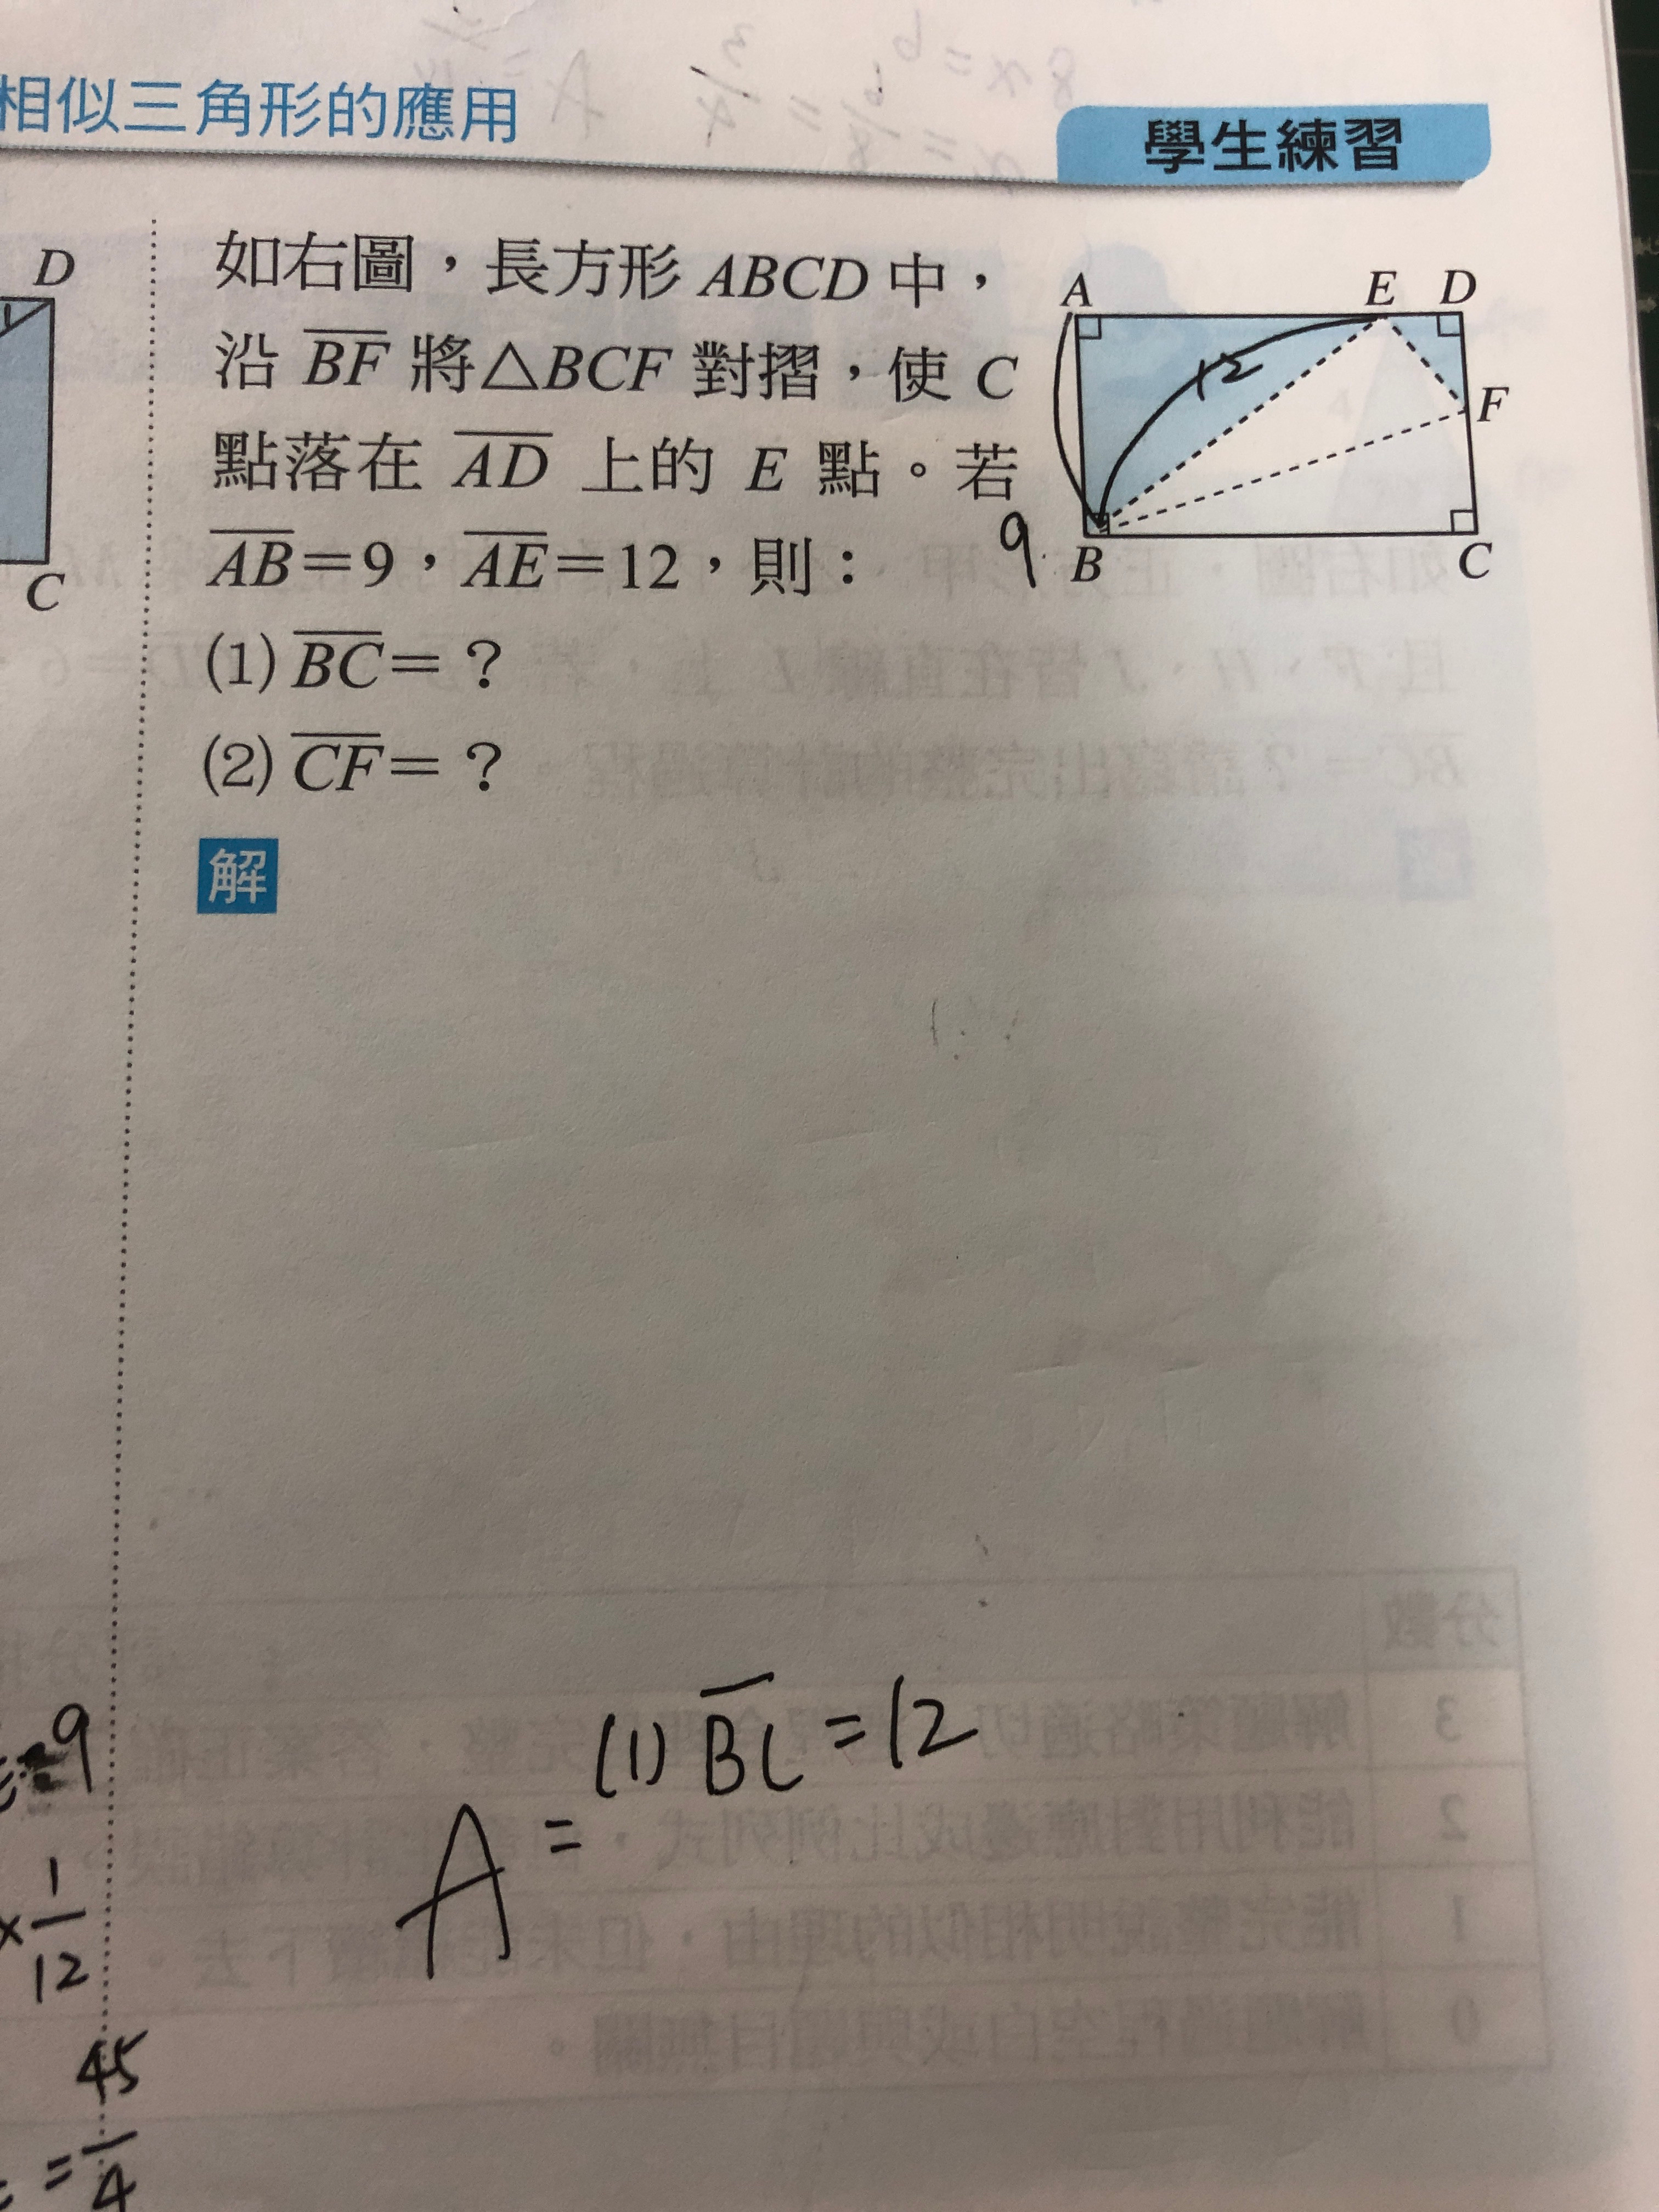 相似三角形的應用
學生練習
D
C
如右圖，長方形 ABCD 中，
沿 BF 將△BCF 對摺，使 C
點落在 AD 上的 E 點。若
AB＝9，AE＝12，則：
(1) BC＝？
(2) CF＝？
A
E
D
F
B
C
12
9
解
(1) BC = 12
A =
9
× 1/12
= 45/4